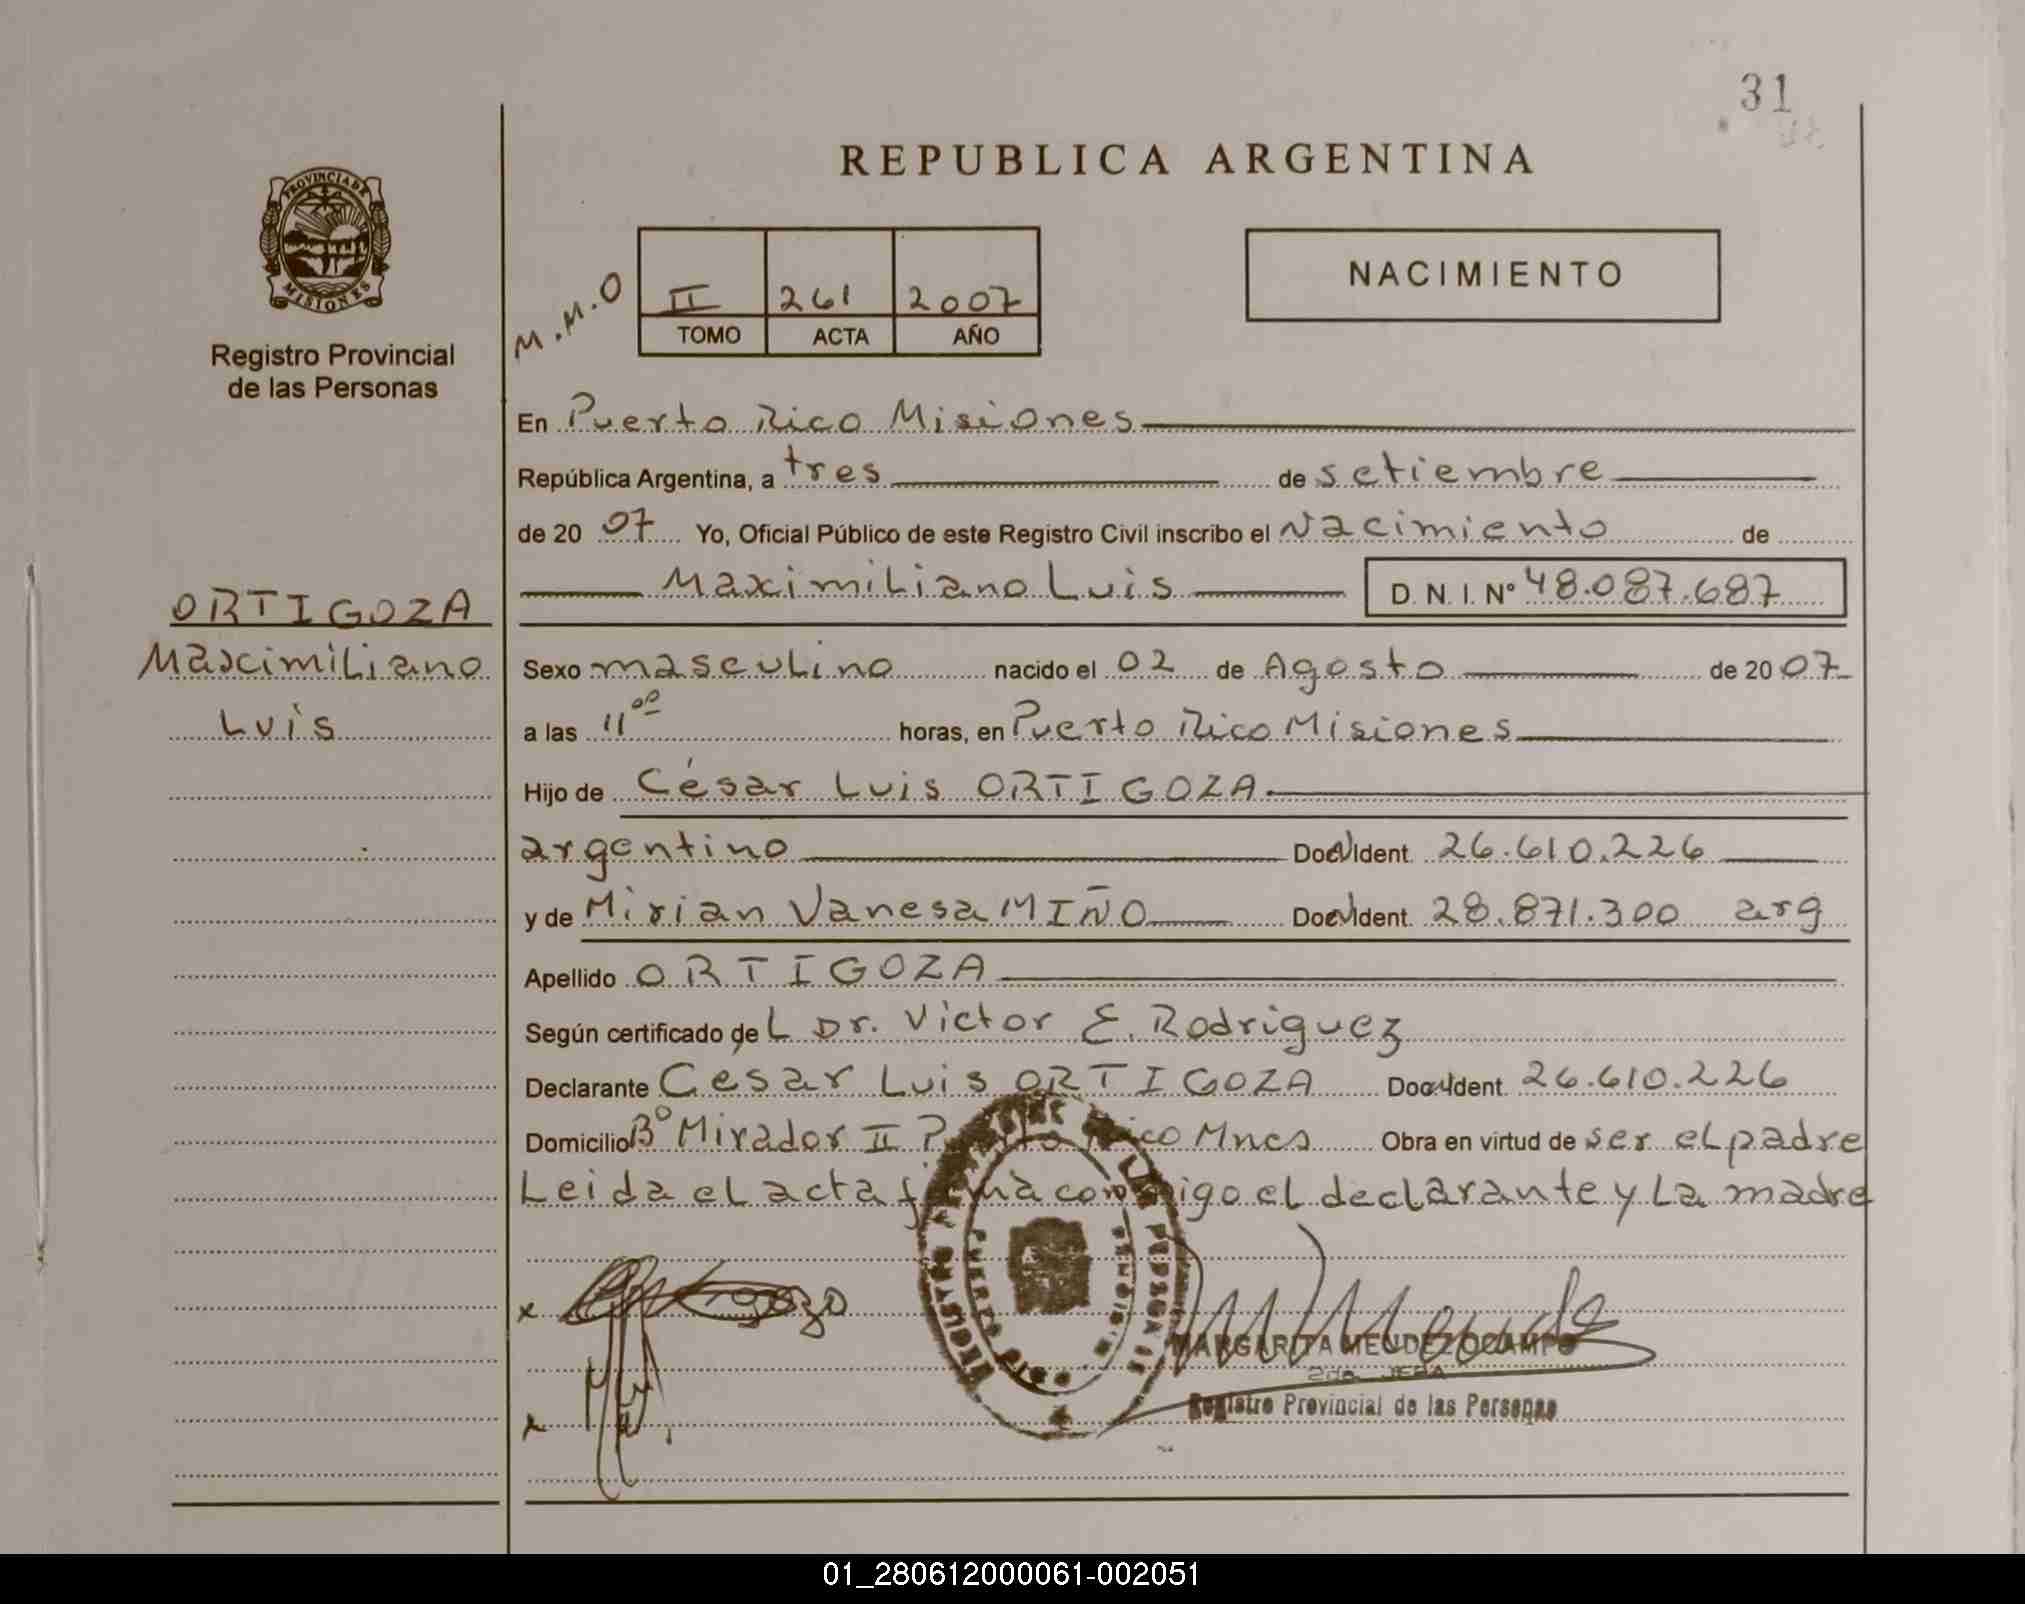 31
REPUBLICA ARGENTINA
PROVINCIA DE MISIONES
Registro Provincial
de las Personas
M.M.O
II 261 2007
TOMO ACTA AÑO
NACIMIENTO
En Puerto Rico Misiones
República Argentina, a tres de setiembre
de 20 07 Yo, Oficial Público de este Registro Civil inscribo el Nacimiento de
Maximiliano Luis D. N. I. Nº 48.087.687
ORTIGOZA
Maximiliano
Luis
Sexo masculino nacido el 02 de Agosto de 20 07
a las 11 00 horas, en Puerto Rico Misiones
Hijo de César Luis ORTIGOZA
argentino Doc. Ident. 26.610.226
y de Mirian Vanesa MIÑO Doc. Ident. 28.871.300 arg
Apellido ORTIGOZA
Según certificado de L Dr. Victor E. Rodriguez
Declarante César Luis ORTIGOZA Doc. Ident. 26.610.226
Domicilio Bº Mirador II Puerto Rico Mnes Obra en virtud de ser el padre
Leida el acta firma conmigo el declarante y la madre
x
MARGARITA MENDEZ OCAMPO
2da. JEFA
Registro Provincial de las Personas
x
01_280612000061-002051